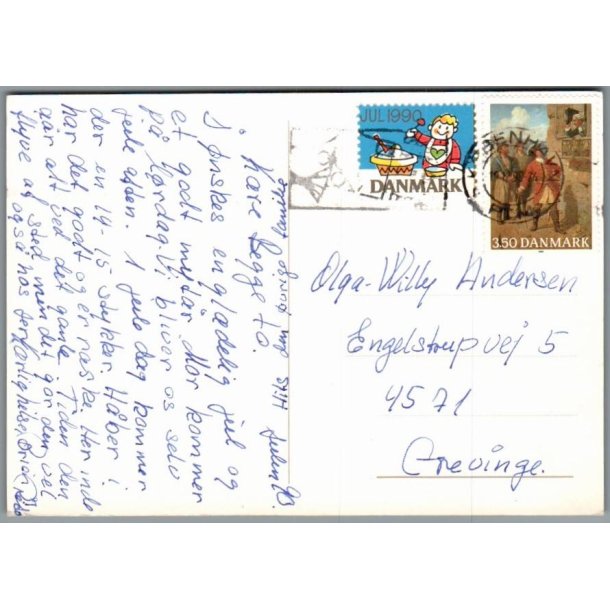 Julen 90.
Kære Begge to.
I ønskes en glædelig jul og
et godt nytår Mor kommer
på Lørdag. Vi bliver os selv
jule aften. 1 jule dag kommer
der en 14-15 stykker. Håber I
har det godt og er raske. Her inde
er alt ved det gamle. Tiden den
flyve af sted men det gør den vel
også hos jer. Kærlig hilsen
JUL 1990
DANMARK
3.50 DANMARK
Olga-Willy Andersen
Engelstrupvej 5
4571
Grevinge.